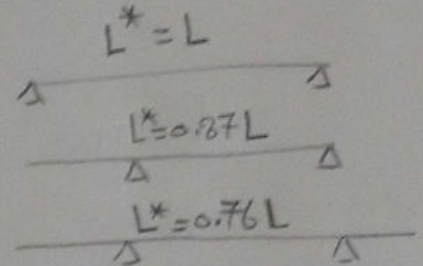 L* = L
L*=0.87L
L*=0.76L